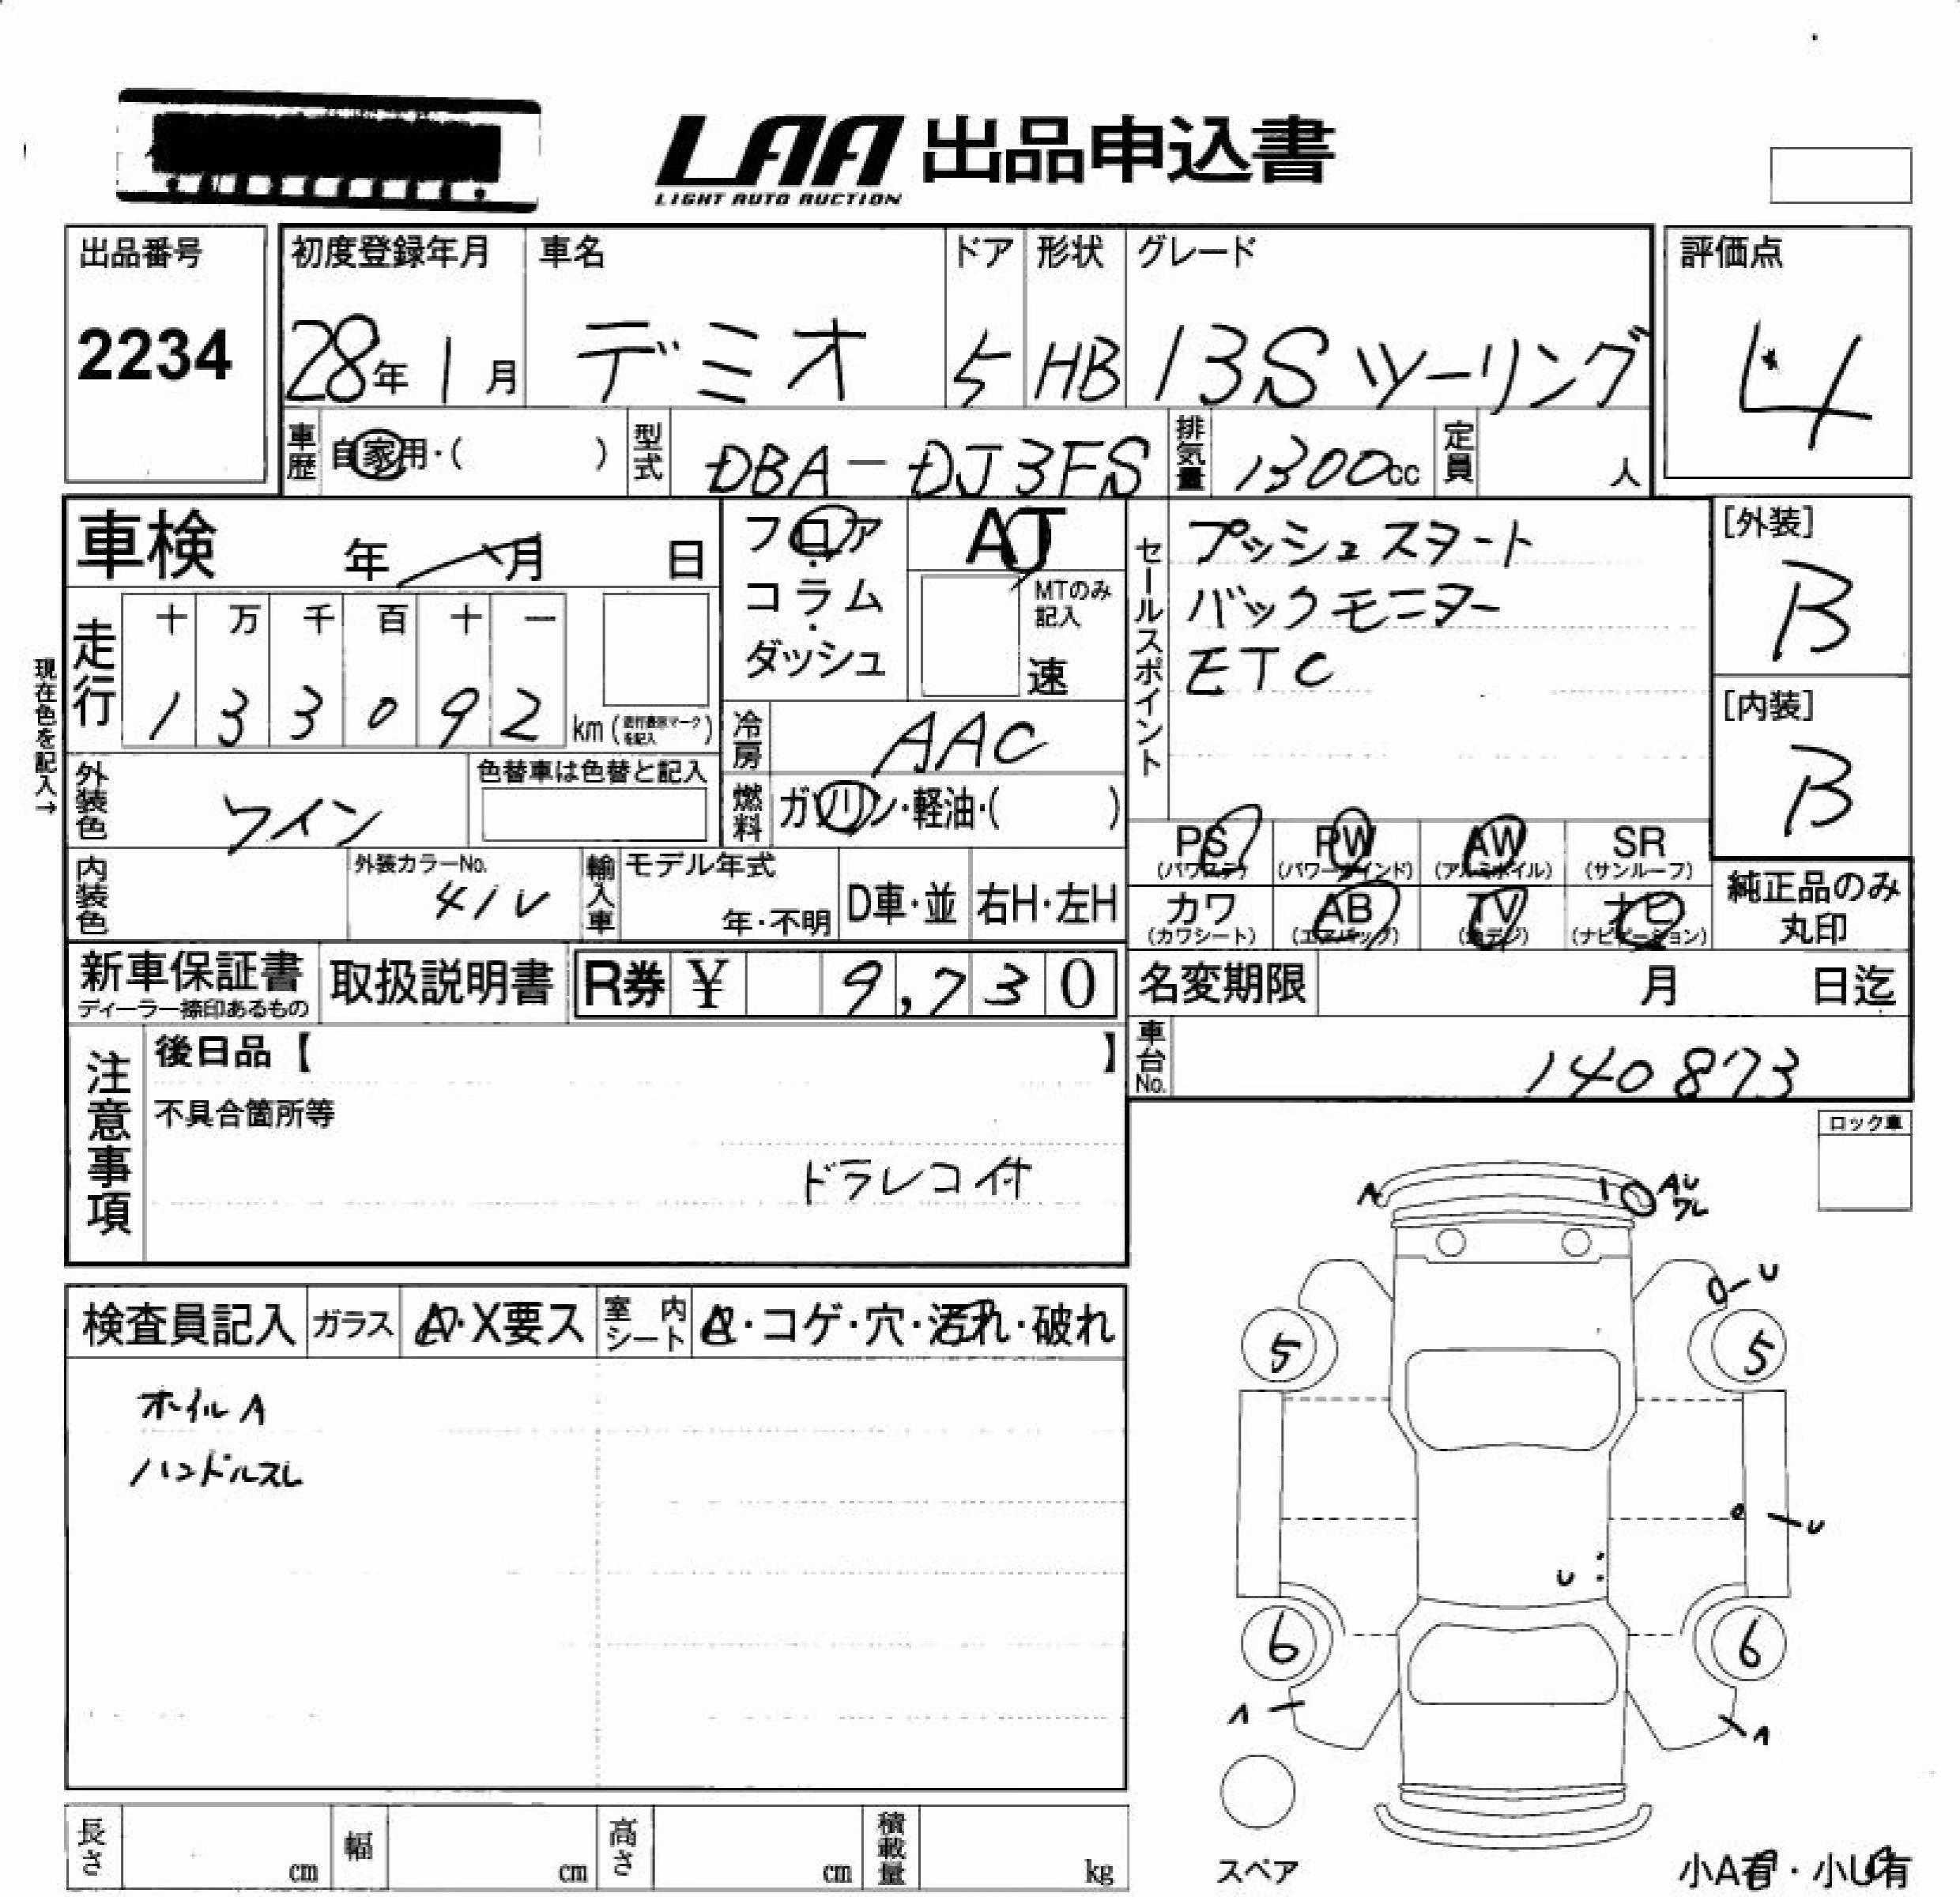 LAA 出品申込書
LIGHT AUTO AUCTION
出品番号
2234
初度登録年月
28年 1月
車名
デミオ
ドア
5
形状
HB
グレード
13S ツーリング
評価点
4
車歴
自家用・( )
型式
DBA-DJ3FS
排気量
1300cc
定員
人
車検 年 月 日
フロア
・
コラム
・
ダッシュ
AT
MTのみ
記入
速
セールスポイント
プッシュスタート
バックモニター
ETC
[外装]
B
[内装]
B
現在色を記入→
走行
十 万 千 百 十 一
1 3 3 0 9 2
km (走行表示マークを記入)
冷房
AAC
外装色
ワイン
色替車は色替と記入
燃料
ガソリン・軽油・( )
PS
(パワステ)
PW
(パワーウインド)
AW
(アルミホイル)
SR
(サンルーフ)
カワ
(カワシート)
AB
(エアバッグ)
TV
(地デジ)
ナビ
(ナビゲーション)
純正品のみ
丸印
内装色
外装カラーNo.
41V
輸入車
モデル年式
年・不明
D車・並
右H・左H
新車保証書
ディーラー捺印あるもの
取扱説明書
R券 ¥ 9,730
名変期限 月 日迄
車台No.
140873
注意事項
後日品【 】
不具合箇所等
ドラレコ付
ロック車
A
AU
ワレ
U
5
5
U
U
6
6
A
A
スペア
小A有・小U有
検査員記入
ガラス
A・X要ス
室内シート
A・コゲ・穴・汚れ・破れ
ホイルA
ハンドルスレ
長さ cm
幅 cm
高さ cm
積載量 kg